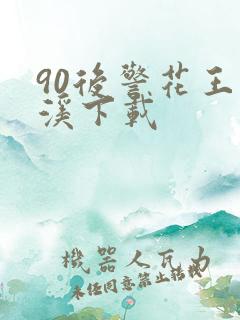 90後警花王
溪下載
機器人瓦力
未經同意禁止轉載